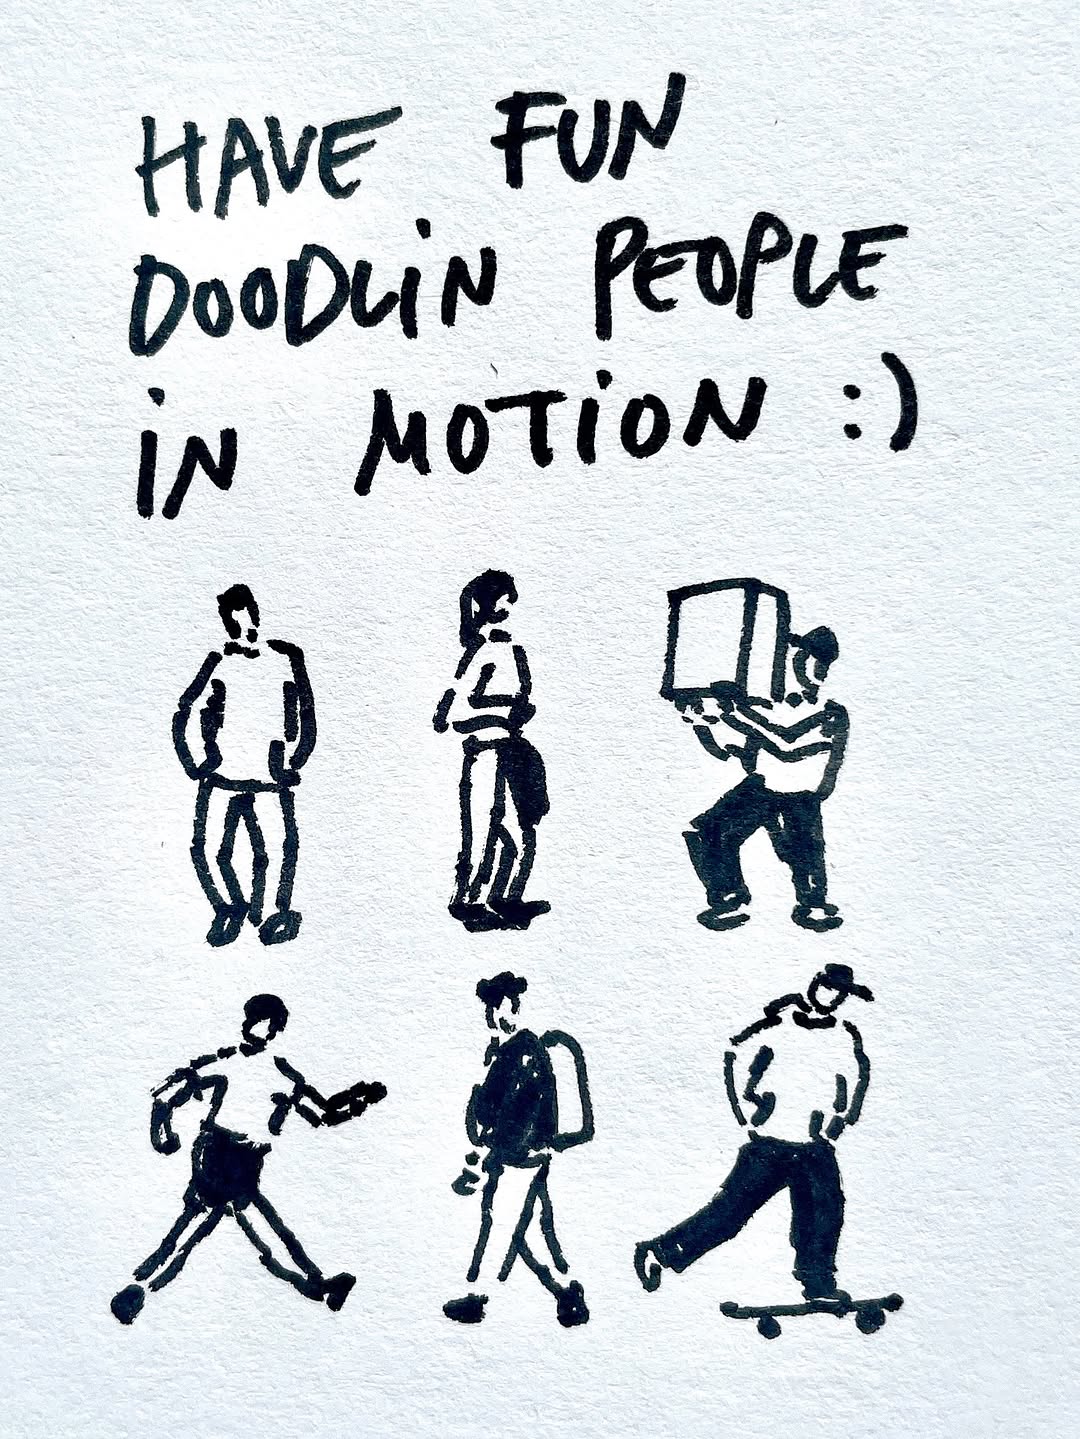 HAVE FUN
DOODLiN PEOPLE
iN MOTiON :)